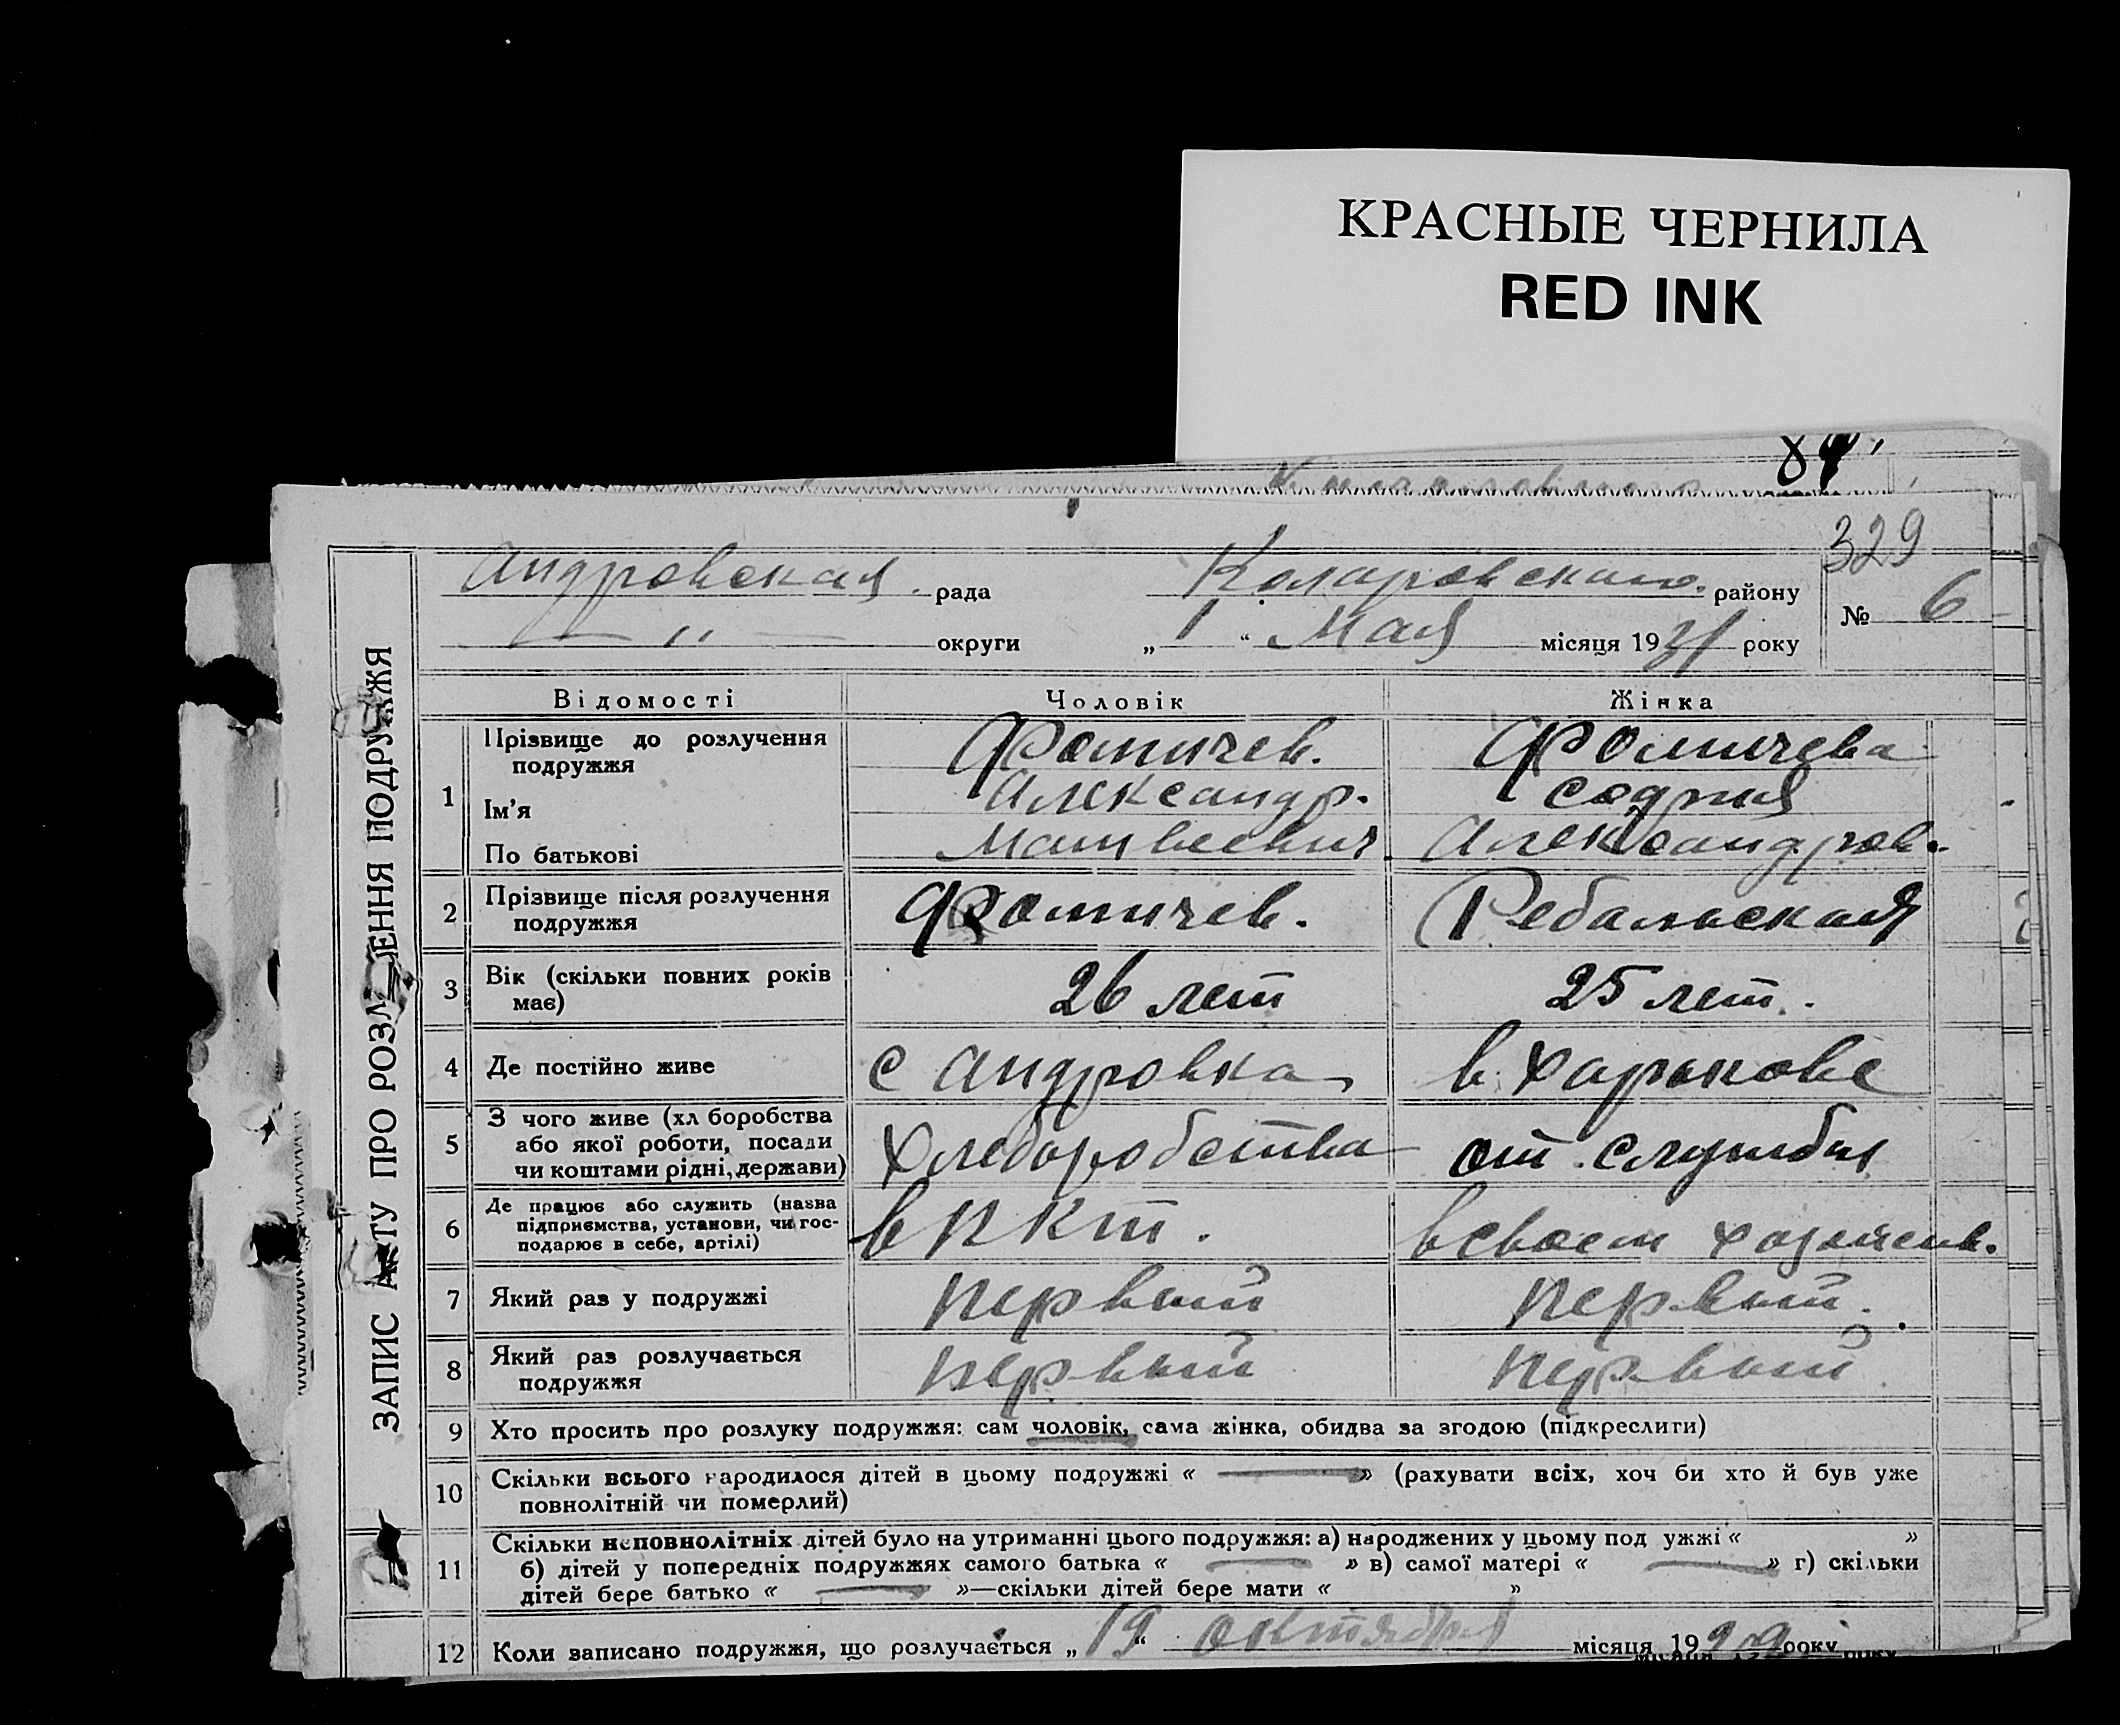 КРАСНЫЕ ЧЕРНИЛА
RED INK
84
329
Андровская рада Коларовского району
— " — округи „ 1 “ Мая місяця 1931 року
№ 6
ЗАПИС АКТУ ПРО РОЗЛ ЕННЯ ПОДРУЖЖЯ
Відомості Чоловік Жінка
1 Прізвище до розлучення подружжя Фомичев. Фомичева
Ім'я Александр. София
По батькові Матвеевич. Александров.
2 Прізвище після розлучення подружжя Фомичев. Ребальская
3 Вік (скільки повних років має) 26 лет 25 лет.
4 Де постійно живе с Андровка в Харькове
5 З чого живе (хл боробства або якої роботи, посади чи коштами рідні, держави) Хлеборобства от службы
6 Де працює або служить (назва підприємства, установи, чи господарює в себе, артілі) в ПКТ. в своем хозяйств.
7 Який раз у подружжі первый первый.
8 Який раз розлучається подружжя первый первый
9 Хто просить про розлуку подружжя: сам чоловік, сама жінка, обидва за згодою (підкреслити)
10 Скільки всього народилося дітей в цьому подружжі « — » (рахувати всіх, хоч би хто й був уже
повнолітній чи померлий)
11 Скільки неповнолітніх дітей було на утриманні цього подружжя: а) народжених у цьому под ужжі « »
б) дітей у попередніх подружжях самого батька « — » в) самої матері « — » г) скільки
дітей бере батько « — »—скільки дітей бере мати « »
12 Коли записано подружжя, що розлучається „ 19 “ октября місяця 1929 року